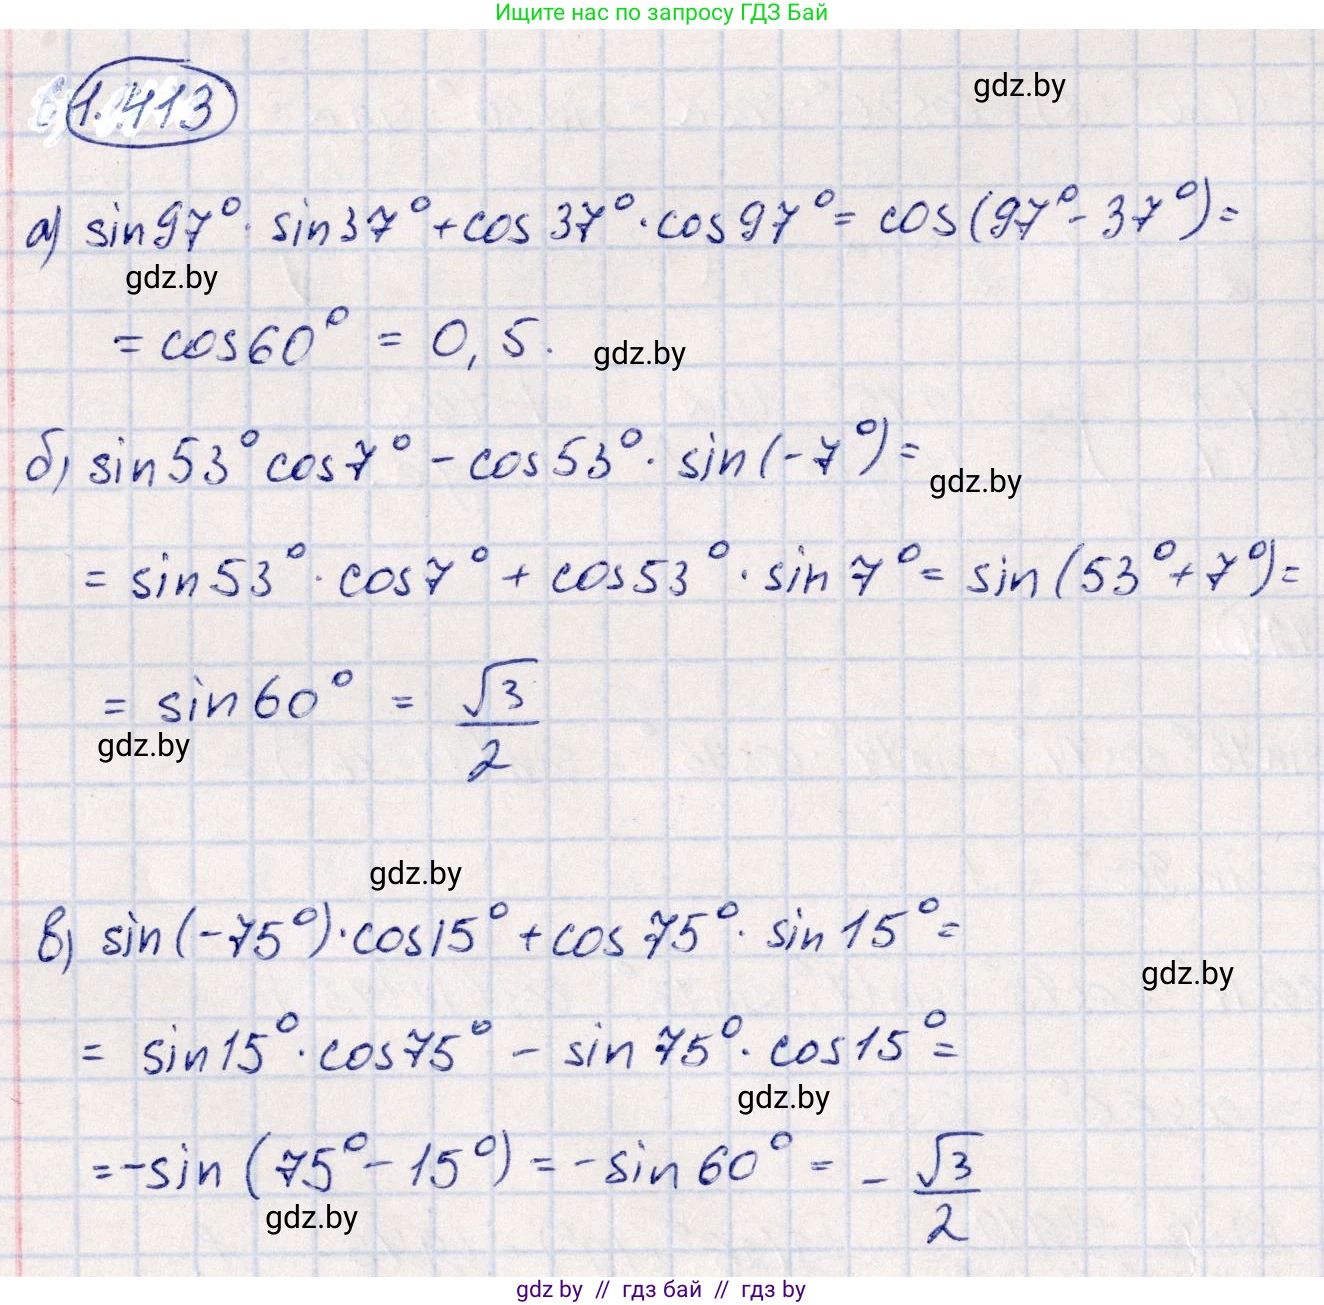 Ищите нас по запросу ГДЗ Бай
1.413
gdz.by
а) sin97°·sin37°+cos37°·cos97°=cos(97°-37°)=
gdz.by
=cos60°=0,5.
gdz.by
б) sin53°cos7°-cos53°·sin(-7°)=
gdz.by
=sin53°·cos7°+cos53°·sin7°=sin(53°+7°)=
=sin60°=√3/2
gdz.by
gdz.by
в) sin(-75°)·cos15°+cos75°·sin15°=
gdz.by
=sin15°·cos75°-sin75°·cos15°=
gdz.by
=-sin(75°-15°)=-sin60°=-√3/2
gdz.by
gdz by // гдз бай // гдз by